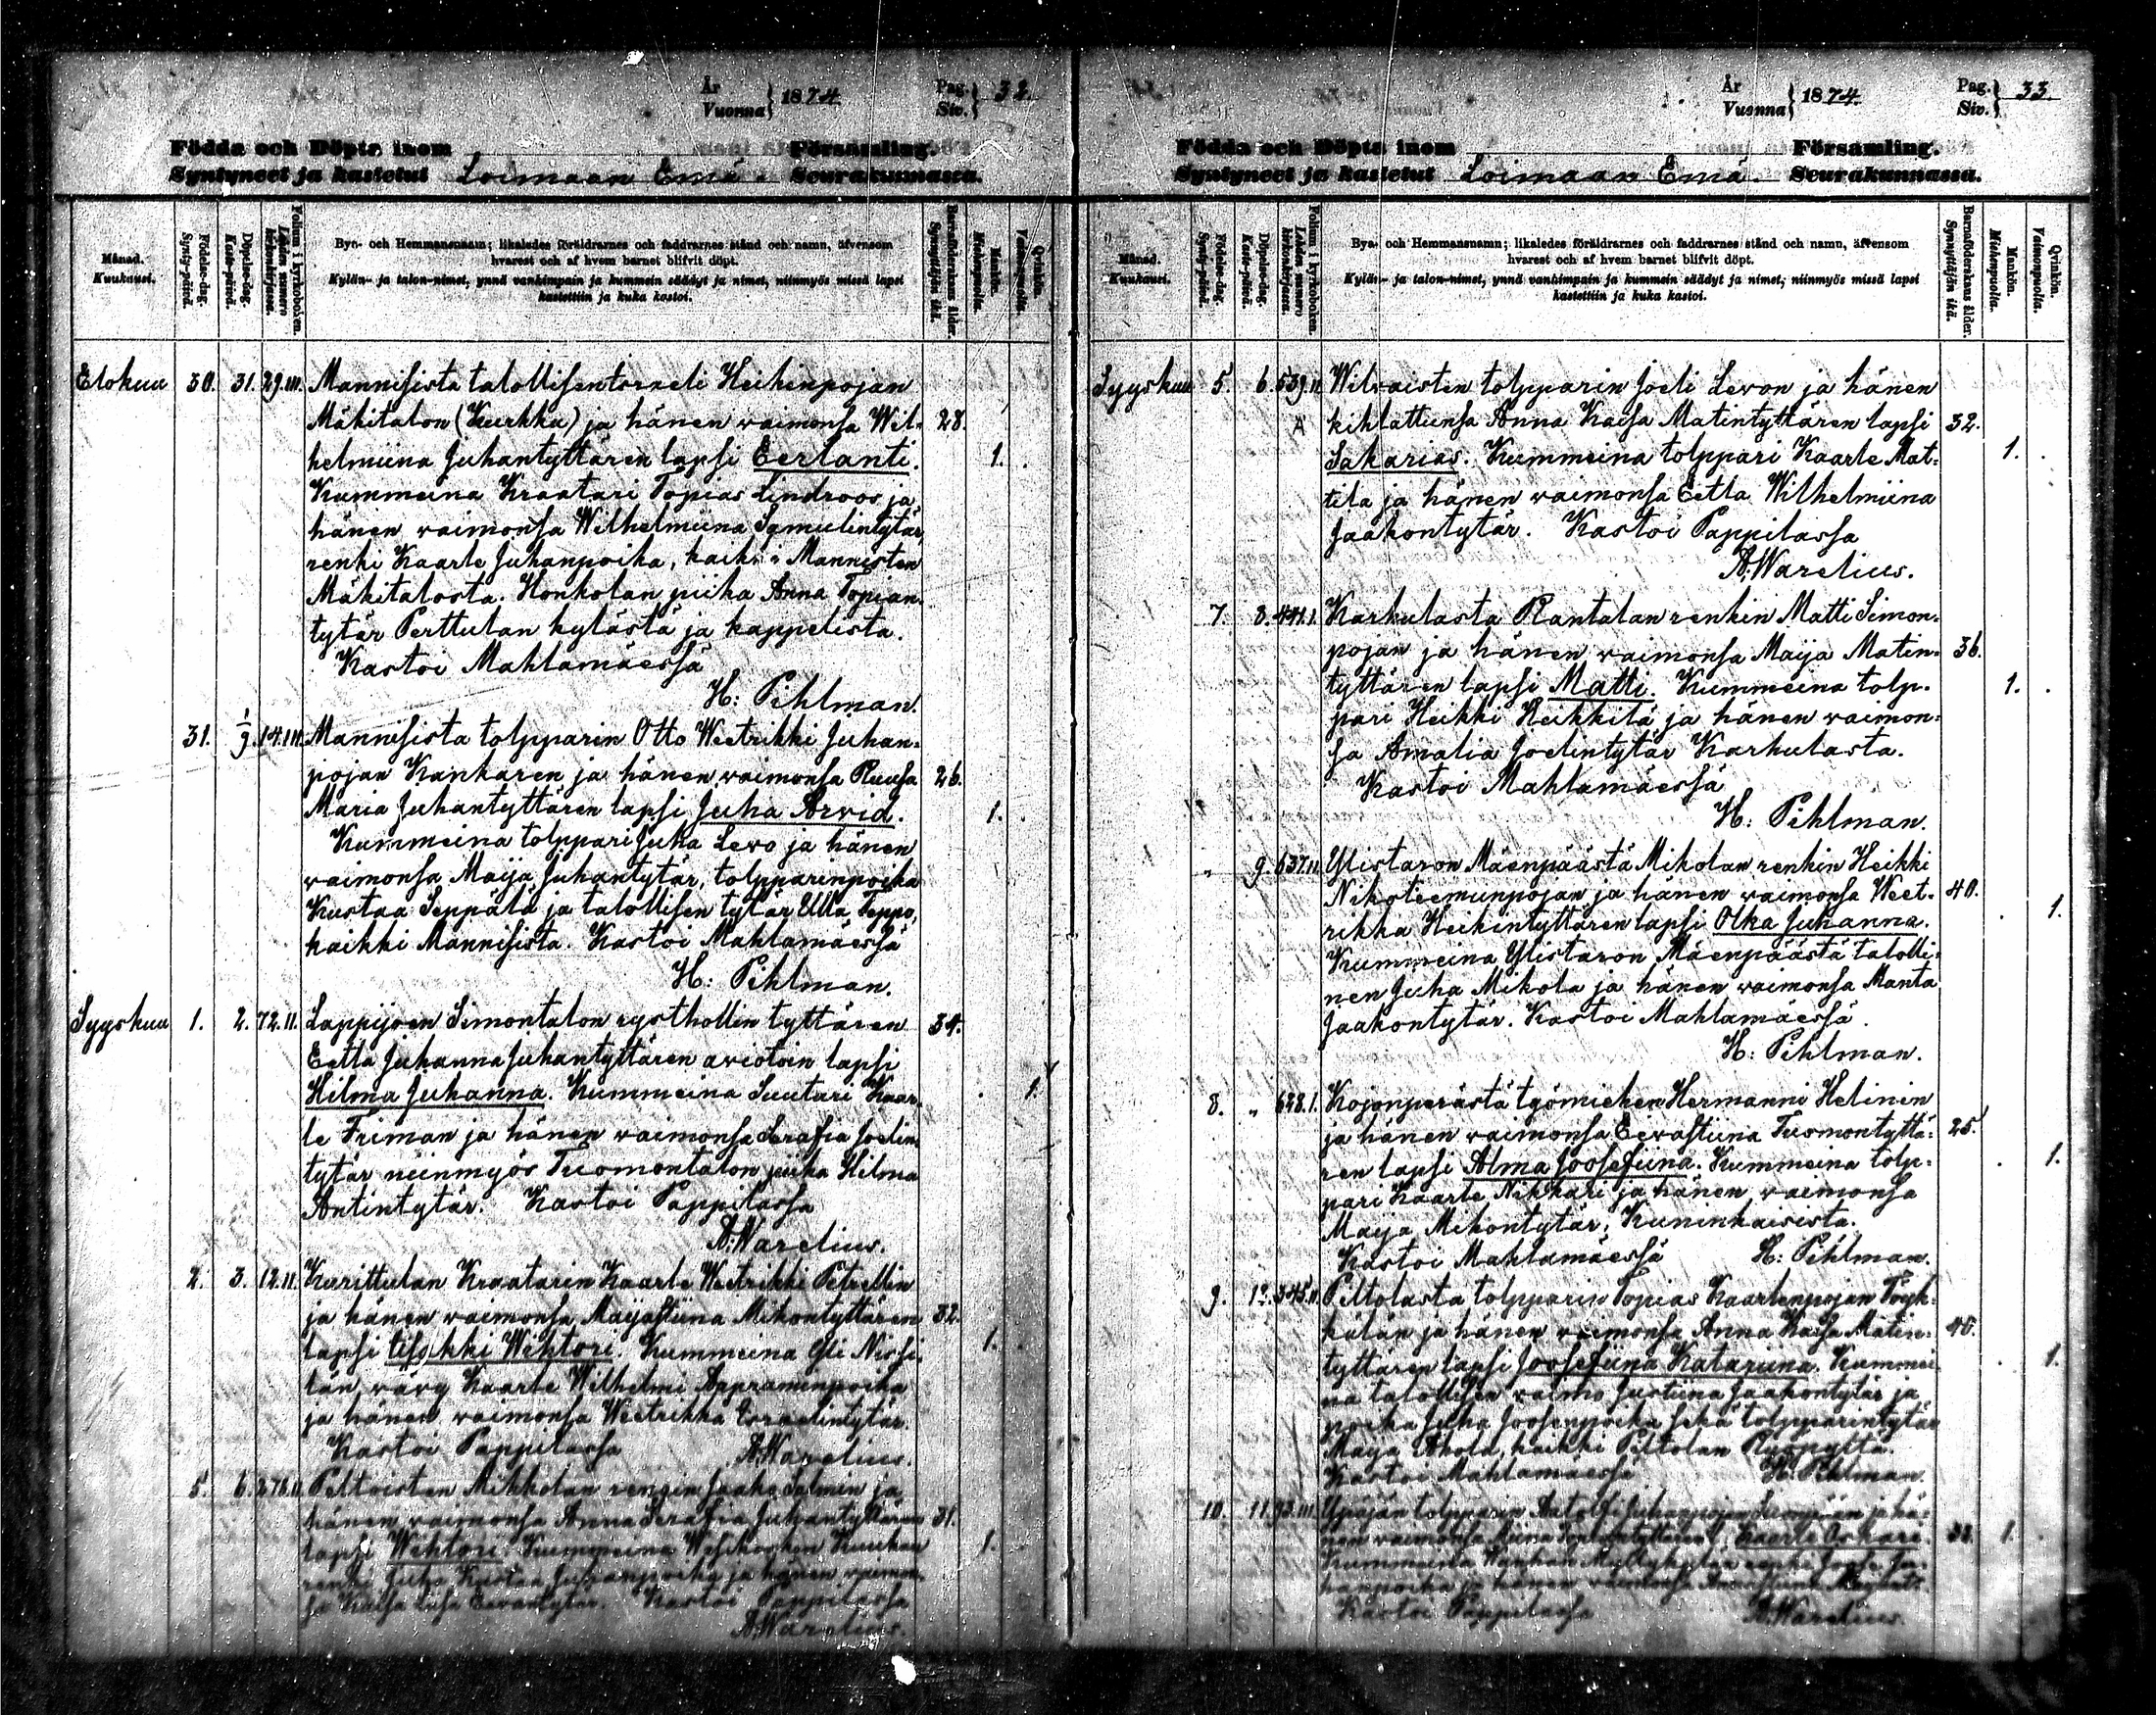 År
Vuonna } 1874.
Pag.
Siv. } 32.
Födda och Döpta inom Församling.
Syntyneet ja kastetut Loimaan Emä. Seurakunnassa.
Månad.
Kuukausi.
Födelse-dag.
Synty-päivä.
Döpelse-dag.
Kaste-päivä.
Folium i kyrkoboken.
Lehden numero kirkonkirjassa.
Byn- och Hemmansnamn; likaledes föräldrarnes och faddrarnes stånd och namn, äfvensom
hvarest och af hvem barnet blifvit döpt.
Kylän- ja talon-nimet, ynnä vanhimpain ja kummein säädyt ja nimet, niinmyös missä lapsi
kastettiin ja kuka kastoi.
Barnaföderskans ålder.
Synnyttäjän ikä.
Mankön.
Miehenpuolta.
Qvinkön.
Vaimonpuolta.
Elokuu 30. 31. 29.III. Mannisista talollisen torneli Heikinpojan
Mäkitalon (Kurkku) ja hänen vaimonsa Wil- 28.
helmiina Juhantyttären lapsi Eerlanti. 1.
Kummeina Kraatari Topias Lindroos ja
hänen vaimonsa Wilhelmiina Samulintytär,
renki Kaarle Juhanpoika, kaikki Mannisten
Mäkitalosta. Honkolan piika Anna Topian-
tytär Perttulan kylästä ja kappelista.
Kastoi Mahlamäessä
H: Pihlman.
31. 1/9. 141.III. Mannisista tolpparin Otto Weetrikki Juhan-
pojan Kankaren ja hänen vaimonsa Ruusa 26.
Maria Juhantyttären lapsi Juha Arvid. 1.
Kummeina tolppari Juha Levo ja hänen
vaimonsa Maija Juhantytär, tolpparinpoika
Kustaa Seppälä ja talollisen tytär Ulla Seppo,
kaikki Mannisista. Kastoi Mahlamäessä
H: Pihlman.
Syyskuu 1. 2. 72.II. Lappijoen Simontalon rysthollin tyttären 34.
Eetla Juhanna Juhantyttären aviotoin lapsi
Hilma Juhanna. Kummeina Suutari Kaar- 1.
le Friman ja hänen vaimonsa Serafia Joelin-
tytär niinmyös Tuomontalon piika Hilma
Antintytär. Kastoi Pappilassa
A:Warelius.
2. 3. 12.II. Kurittulan Kraatarin Kaarle Weetrikki Petrellin
ja hänen vaimonsa Maijastiina Mikontyttären 32.
lapsi Wihtori. Kummeina Yli Nissi- 1.
län vävy Kaarle Wilhelmi Aapraminpoika
ja hänen vaimonsa Weetrikka Israelintytär.
Kastoi Pappilassa A:Warelius.
5. 6. 276.II. Peltoisten Mikkolan rengin Jaako Salmin ja
hänen vaimonsa Anna Serafia Juhantyttären 31.
lapsi Wihtori. Kummeina Wesikosken Kuukan 1.
renki Juho Kustaa Juhanpoika ja hänen vaimon-
sa Kaisa Liisa Eevantytär. Kastoi Pappilassa
A:Warelius.
År
Vuonna } 1874.
Pag.
Siv. } 33.
Födda och Döpta inom Församling.
Syntyneet ja kastetut Loimaan Emä. Seurakunnassa.
Månad.
Kuukausi.
Födelse-dag.
Synty-päivä.
Döpelse-dag.
Kaste-päivä.
Folium i kyrkoboken.
Lehden numero kirkonkirjassa.
Bya- och Hemmansnamn; likaledes föräldrarnes och faddrarnes stånd och namn, äfvensom
hvarest och af hvem barnet blifvit döpt.
Kylän- ja talon-nimet, ynnä vanhimpain ja kummein säädyt ja nimet, niinmyös missä lapsi
kastettiin ja kuka kastoi.
Barnaföderskans ålder.
Synnyttäjän ikä.
Mankön.
Miehenpuolta.
Qvinkön.
Vaimonpuolta.
Syyskuu 5. 6. 539.II. Wilvaisten tolpparin Joeli Levon ja hänen
A kihlattunsa Anna Kaisa Matintyttären lapsi 32.
Sakarias. Kummeina tolppari Kaarle Mat- 1.
tila ja hänen vaimonsa Eetla Wilhelmiina
Jaakontytär. Kastoi Pappilassa
A:Warelius.
7. 8. 441.I. Karhulasta Rantalan renkin Matti Simon-
pojan ja hänen vaimonsa Maija Matin- 36.
tyttären lapsi Matti. Kummeina tolp- 1.
pari Heikki Heikkilä ja hänen vaimon-
sa Amalia Joelintytär Karhulasta.
Kastoi Mahlamäessä
H: Pihlman.
" 9. 637.II. Ylistaron Mäenpäästä Mikolan renkin Heikki
Nikoteemunpojan ja hänen vaimonsa Weet- 40.
rikka Heikintyttären lapsi Olka Juhanna. 1.
Kummeina Ylistaron Mäenpäästä talolli-
nen Juha Mikola ja hänen vaimonsa Manta
Jaakontytär. Kastoi Mahlamäessä.
H: Pihlman.
8. " 648.I. Kojonperästä työmiehen Hermanni Helinin
ja hänen vaimonsa Eevastiina Tuomontyttä- 25.
ren lapsi Alma Joosefiina. Kummeina tolp- 1.
pari Kaarle Nikkari ja hänen vaimonsa
Maija Mikontytär, Kuninkaisista.
Kastoi Mahlamäessä H: Pihlman.
9. 12. 345.II. Piltolasta tolpparin Topias Kaarlenpojan Töyk-
kälän ja hänen vaimonsa Anna Kaisa Matin- 40.
tyttären lapsi Joosefiina Katariina. Kummei- 1.
na talollisen vaimo Justiina Jaakontytär ja
poika Juha Joosenpoika sekä tolpparintytär
Maija Ahola, kaikki Piltolan
Kastoi Mahlamäessä H: Pihlman.
10. 11. 93.III. Ypäjän tolpparin Aatolfi Juhanpojan ja hä-
nen vaimonsa Kaarle Oskari. 1.
Kummeina renki
ja hänen vaimonsa
Kastoi Pappilassa A:Warelius.